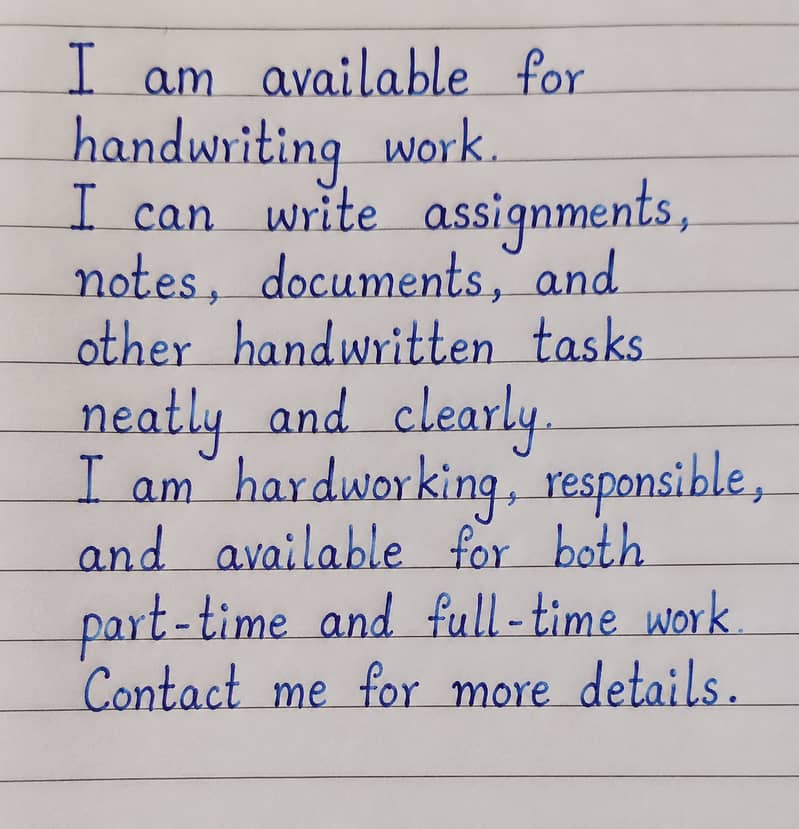 I am available for
handwriting work.
I can write assignments,
notes, documents, and
other handwritten tasks
neatly and clearly.
I am hardworking, responsible,
and available for both
part-time and full-time work.
Contact me for more details.